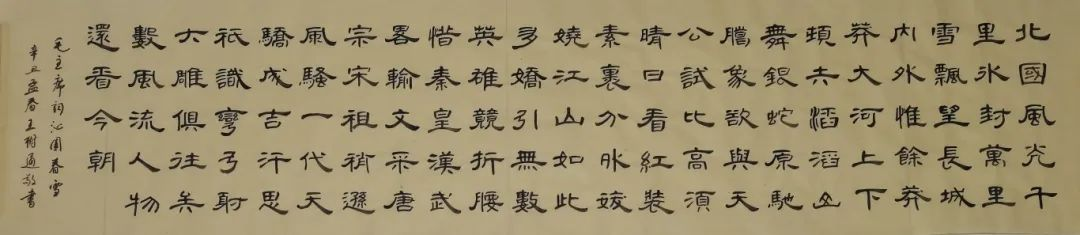 北國風光千
里冰封萬里
雪飄望長城
內外惟餘莽
莽大河上下
頓失滔滔山
舞銀蛇原馳
臘象欲與天
公試比高須
晴日看紅裝
素裹分外妖
嬈江山如此
多嬌引無數
英雄競折腰
惜秦皇漢武
畧輸文采唐
宗宋祖稍遜
風騷一代天
驕成吉汗思
祇識彎弓射
大雕俱往矣
數風流人物
還看今朝
毛主席詞沁園春雪
辛丑孟春王樹敬書